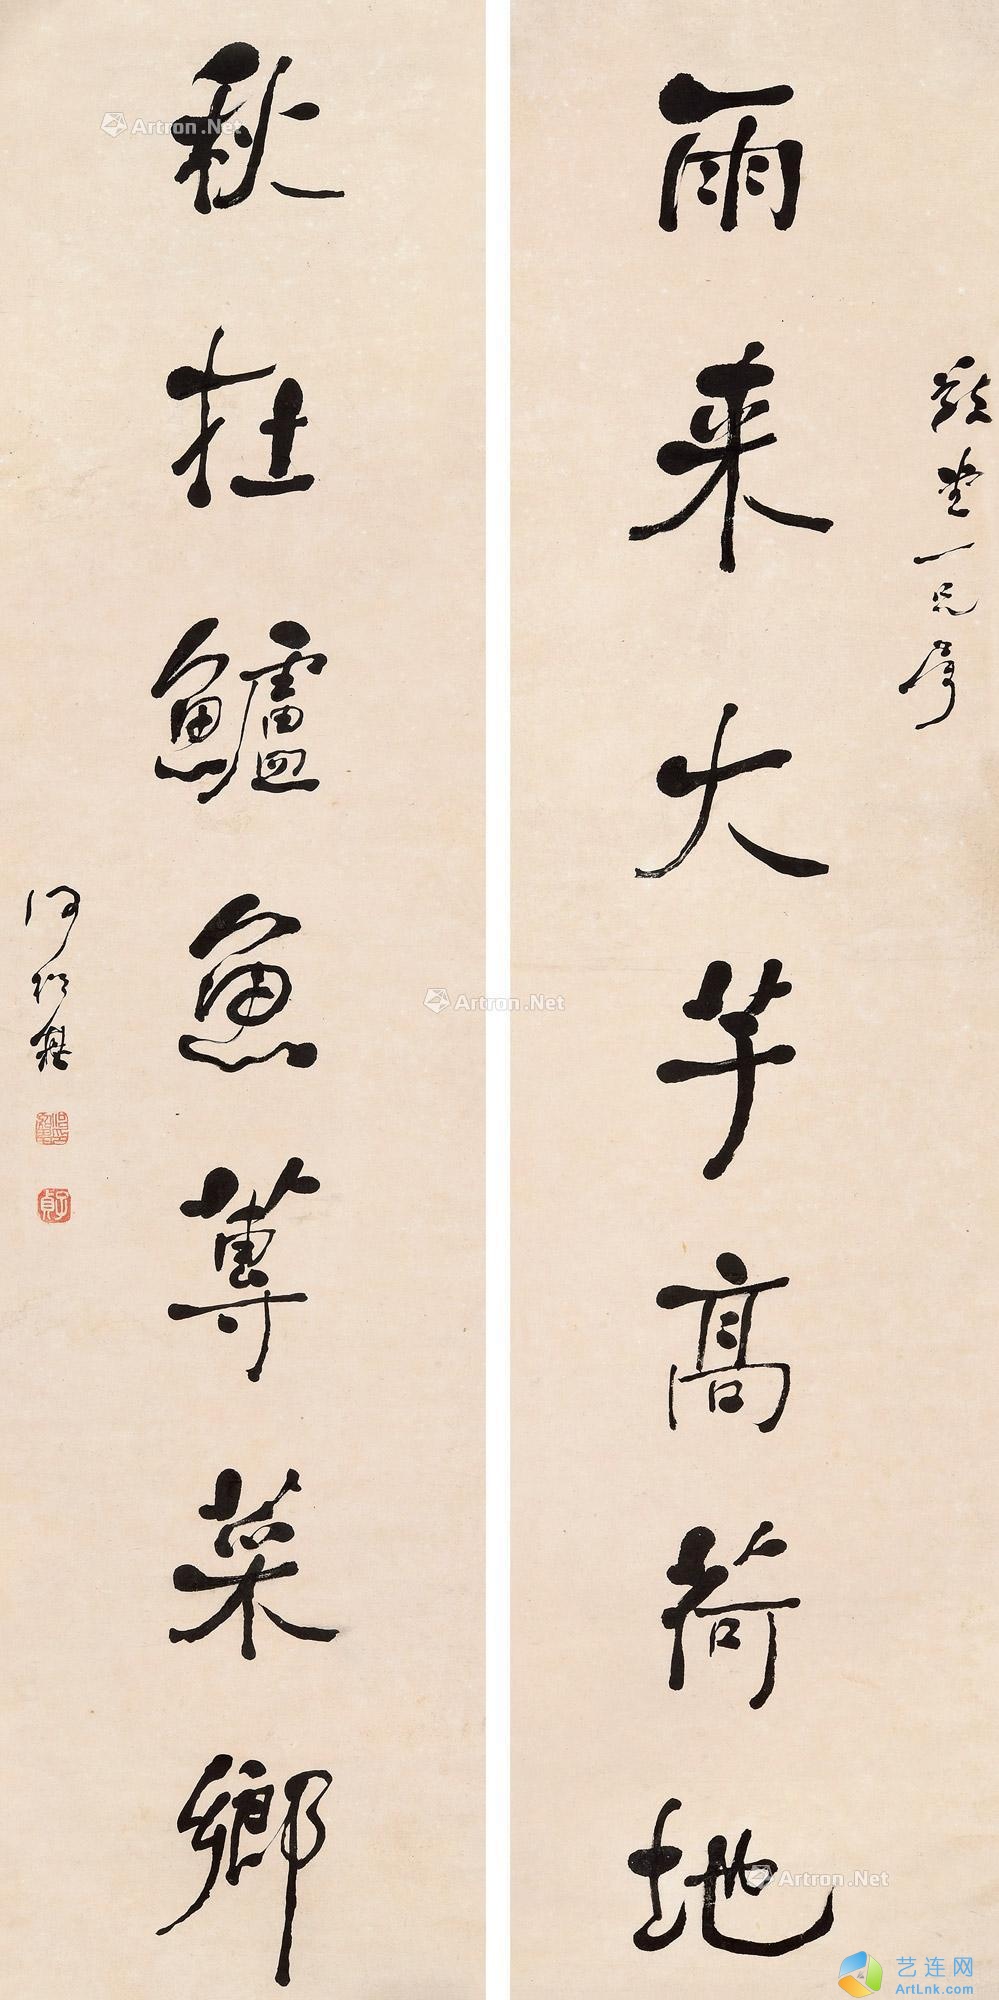 雨来大芋高荷地
一兄属
秋在鱸魚蓴菜鄉
何紹基
子貞
Artron.Net
Artron.Net
Artron.Net
艺连网
ArtLnk.com